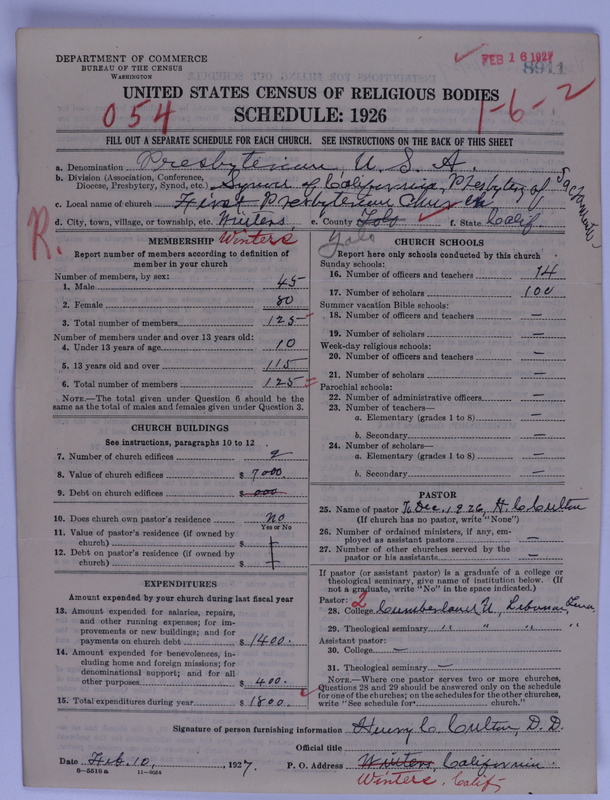 DEPARTMENT OF COMMERCE
BUREAU OF THE CENSUS
WASHINGTON
FEB 16 1927
8911
UNITED STATES CENSUS OF RELIGIOUS BODIES
SCHEDULE: 1926
054
1-6-2
FILL OUT A SEPARATE SCHEDULE FOR EACH CHURCH. SEE INSTRUCTIONS ON THE BACK OF THIS SHEET
a. Denomination Presbyterian, U.S.A
b. Division (Association, Conference, Diocese, Presbytery, Synod, etc.) Synod of California, Presbytery of Sacramento
c. Local name of church First Presbyterian Church
d. City, town, village, or township, etc. Winters e. County Yolo f. State Calif
R.
Winters
Yolo
MEMBERSHIP
Report number of members according to definition of
member in your church
Number of members, by sex:
1. Male 45
2. Female 80
3. Total number of members 125
Number of members under and over 13 years old:
4. Under 13 years of age 10
5. 13 years old and over 115
6. Total number of members 125
NOTE.—The total given under Question 6 should be
the same as the total of males and females given under Question 3.
CHURCH BUILDINGS
See instructions, paragraphs 10 to 12
7. Number of church edifices 2
8. Value of church edifices $ 7000.
9. Debt on church edifices $ 000
10. Does church own pastor's residence No
Yes or No
11. Value of pastor's residence (if owned by
church) $
12. Debt on pastor's residence (if owned by
church) $
EXPENDITURES
Amount expended by your church during last fiscal year
13. Amount expended for salaries, repairs,
and other running expenses; for im-
provements or new buildings; and for
payments on church debt $ 1400.
14. Amount expended for benevolences, in-
cluding home and foreign missions; for
denominational support; and for all
other purposes $ 400.
15. Total expenditures during year $ 1800.
CHURCH SCHOOLS
Report here only schools conducted by this church
Sunday schools:
16. Number of officers and teachers 14
17. Number of scholars 100
Summer vacation Bible schools:
18. Number of officers and teachers —
19. Number of scholars —
Week-day religious schools:
20. Number of officers and teachers —
21. Number of scholars —
Parochial schools:
22. Number of administrative officers —
23. Number of teachers—
a. Elementary (grades 1 to 8) —
b. Secondary —
24. Number of scholars—
a. Elementary (grades 1 to 8) —
b. Secondary —
PASTOR
25. Name of pastor To Dec. 1926, H. C. Culton
(If church has no pastor, write "None")
26. Number of ordained ministers, if any, em-
ployed as assistant pastors —
27. Number of other churches served by the
pastor or his assistants —
If pastor (or assistant pastor) is a graduate of a college or
theological seminary, give name of institution below. (If
not a graduate, write "No" in the space indicated.)
Pastor: 2
28. College Cumberland U, Lebanon, Tenn.
29. Theological seminary " " "
Assistant pastor:
30. College —
31. Theological seminary —
NOTE.—Where one pastor serves two or more churches,
Questions 28 and 29 should be answered only on the schedule
for one of the churches; on the schedules for the other churches,
write "See schedule for church."
Signature of person furnishing information Henry C. Culton, D.D.
Official title
Date Feb. 10, 1927. P. O. Address Winters, California.
6-5518a 11-9054
Winters, Calif